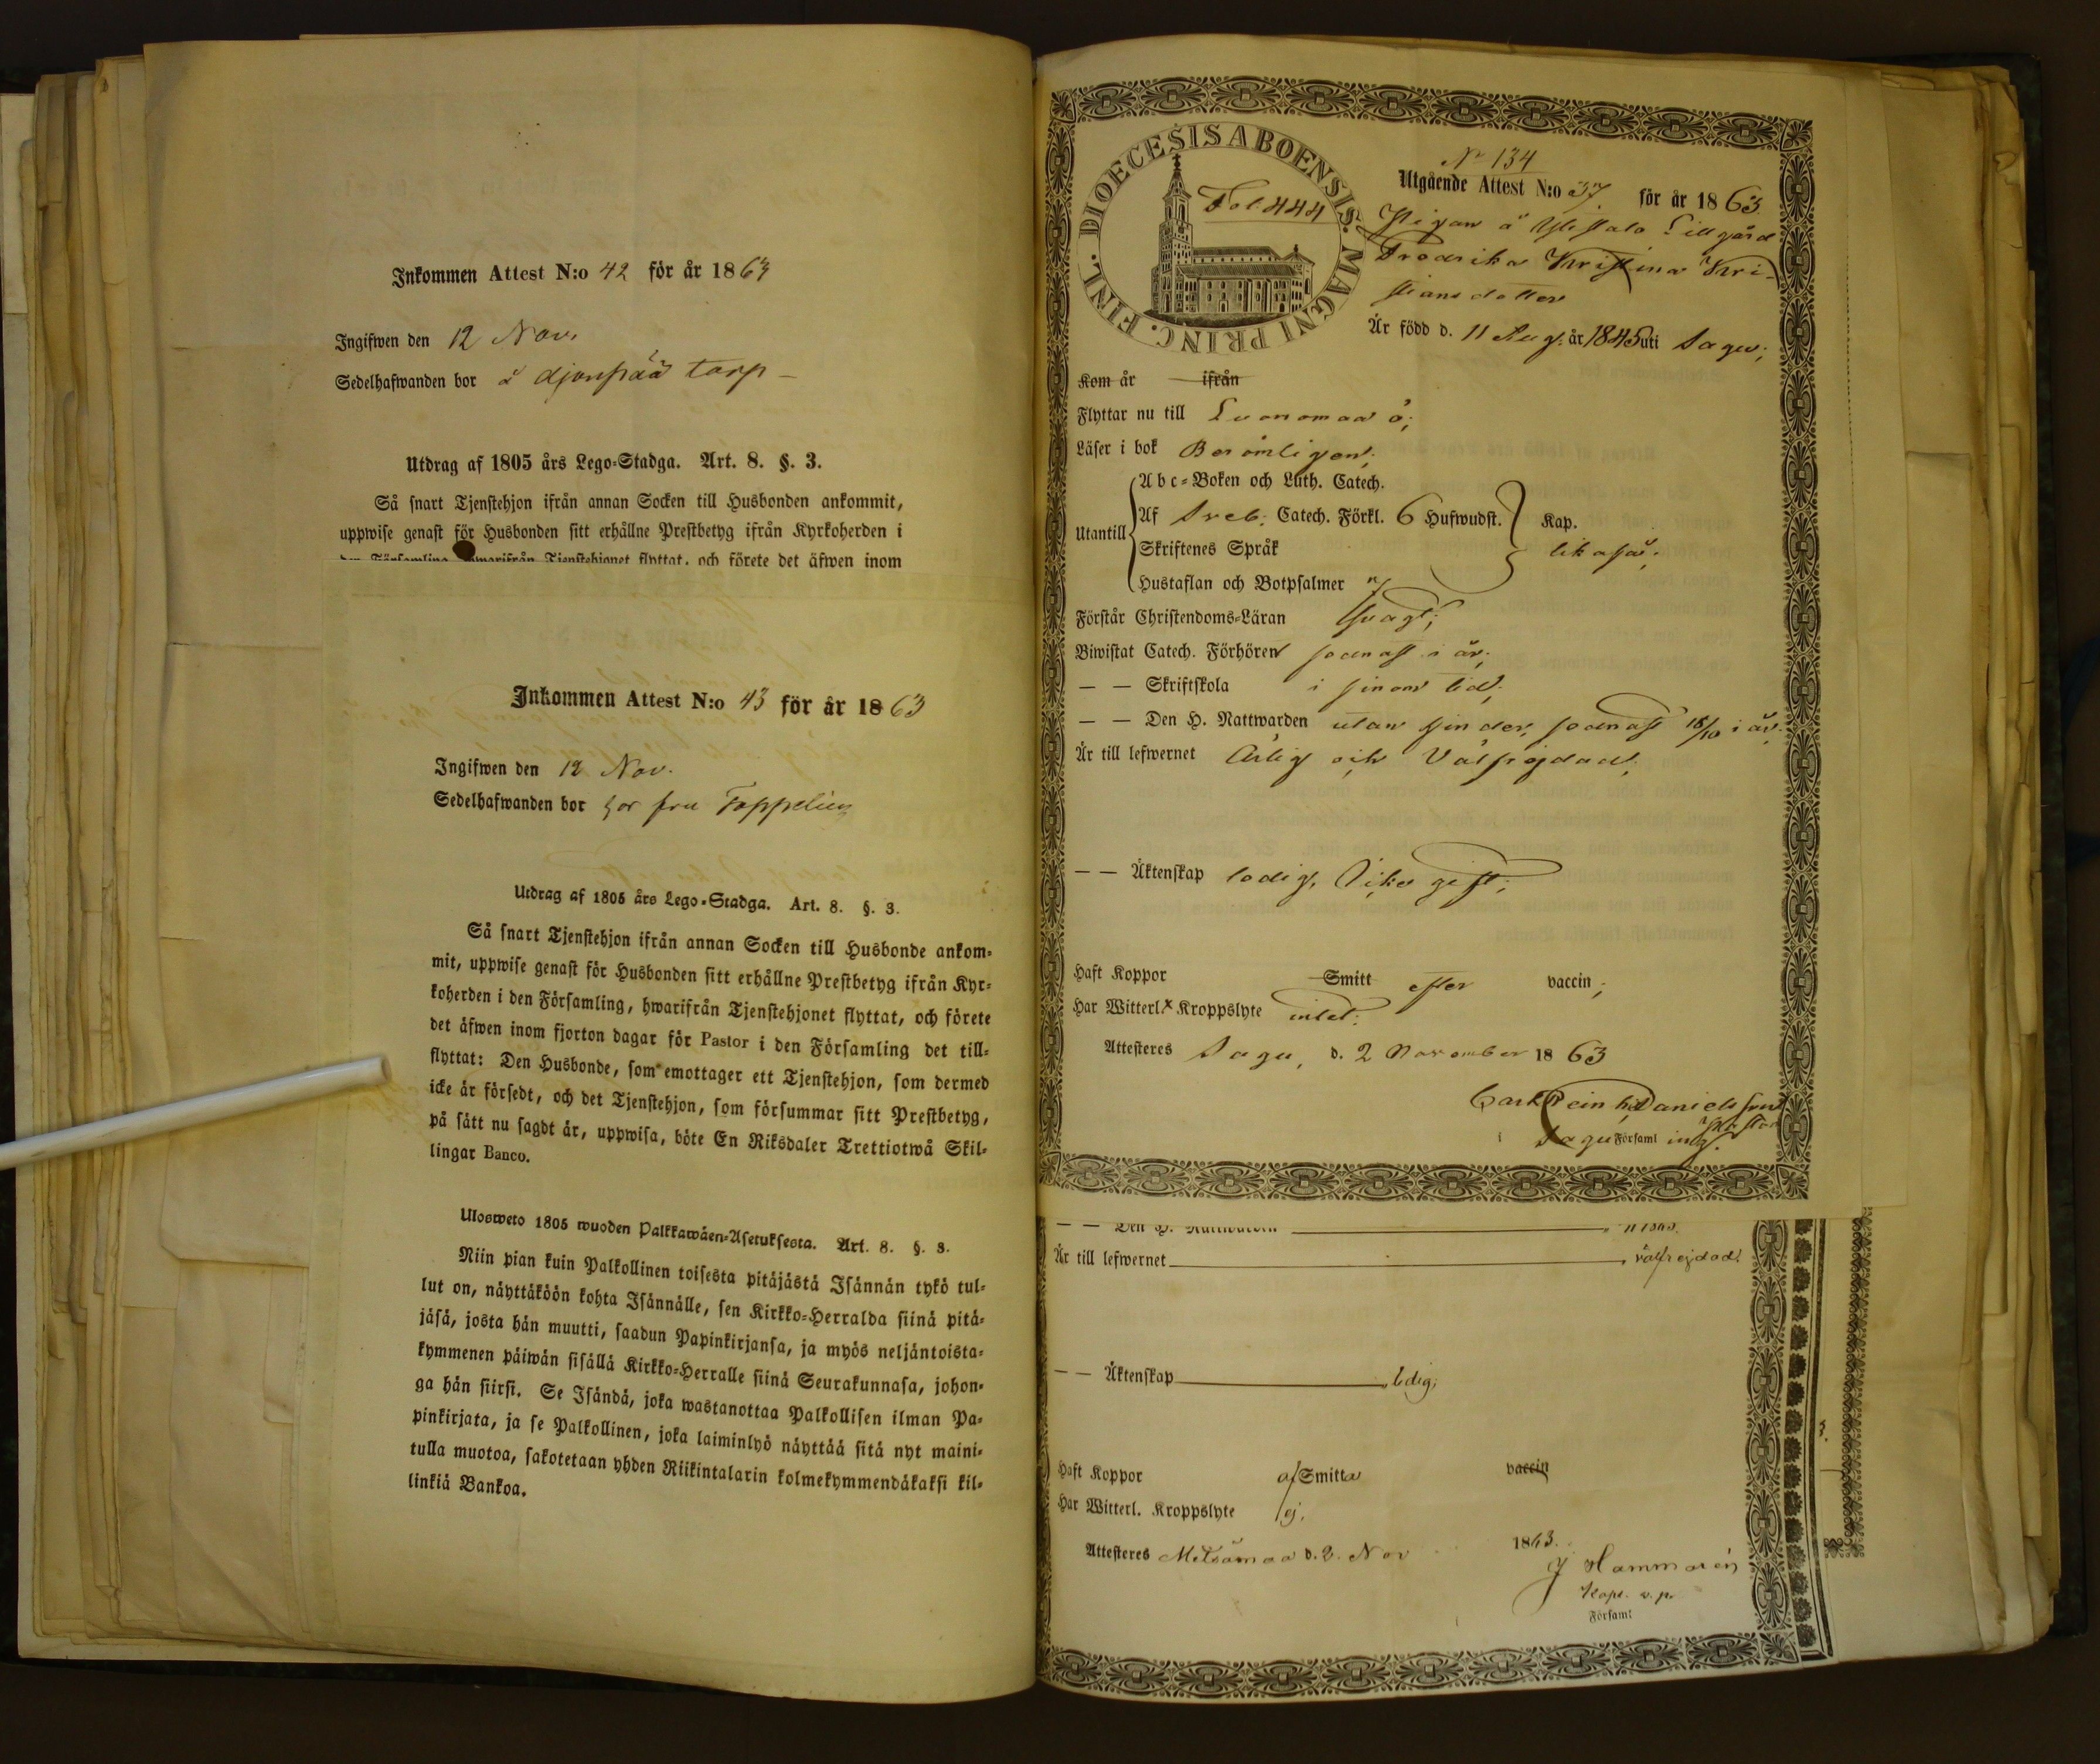 Inkommen Attest N:o 42 för år 1863
Ingifwen den 12 Nov.
Sedelhafwanden bor å djonpää torp –
Utdrag af 1805 års Lego-Stadga. Art. 8. §. 3.
Så snart Tjenstehjon ifrån annan Socken till Husbonden ankommit,
uppwise genast för Husbonden sitt erhållne Prestbetyg ifrån Kyrkoherden i
den Församling hwarifrån Tjenstehjonet flyttat, och förete det äfwen inom
Inkommen Attest N:o 43 för år 1863
Ingifwen den 12 Nov.
Sedelhafwanden bor hos fru Toppelius
Utdrag af 1805 års Lego-Stadga. Art. 8. §. 3.
Så snart Tjenstehjon ifrån annan Socken till Husbonde ankom-
mit, uppwise genast för Husbonden sitt erhållne Prestbetyg ifrån Kyr-
koherden i den Församling, hwarifrån Tjenstehjonet flyttat, och förete
det äfwen inom fjorton dagar för Pastor i den Församling det till-
flyttat: Den Husbonde, som emottager ett Tjenstehjon, som dermed
icke är försedt, och det Tjenstehjon, som försummar sitt Prestbetyg,
på sätt nu sagdt är, uppwisa, böte En Riksdaler Trettiotwå Skil-
lingar Banco.
Ulosweto 1805 wuoden Palkkawäen-Asetuksesta. Art. 8. §. 3.
Niin pian kuin Palkollinen toisesta pitäjästä Isännän tykö tul-
lut on, näyttäköön kohta Isännälle, sen Kirkko-Herralda siinä pitä-
jäsä, josta hän muutti, saadun Papinkirjansa, ja myös neljäntoista-
kymmenen päiwän sisällä Kirkko-Herralle siinä Seurakunnasa, johon-
ga hän siirsi. Se Isändä, joka wastanottaa Palkollisen ilman Pa-
pinkirjata, ja se Palkollinen, joka laiminlyö näyttää sitä nyt maini-
tulla muotoa, sakotetaan yhden Riikintalarin kolmekymmendäkaksi kil-
linkiä Bankoa.
DIOECESIS ABOENSIS. MAGNI PRINC. FINL.
Fol 444
No 134
Utgående Attest N:o 37. för år 1863
Pigan å Lillgård
Fredrika Kristina Kri-
stiansdotter
Är född d. 11 Aug. år 1845 uti Sagu;
Kom år ifrån
Flyttar nu till Luonomaa ö;
Läser i bok Berömligen;
Utantill
Abc-Boken och Luth. Catech.
Af Sveb. Catech. Förkl. 6 Hufwudst. Kap.
Skriftenes Språk likaså;
Hustaflan och Botpsalmer
Förstår Christendoms-Läran svagt;
Biwistat Catech. Förhören sednast i år;
– – Skriftskola i sinom tid;
– – Den H. Nattwarden utan hinder, sednast 18/10 i år.
Är till lefwernet Ärlig och Välfrejdad;
– – Äktenskap ledig, Icke gift;
Haft Koppor Smitt efter vaccin;
Har Witterl. Kroppslyte intet;
Attesteres Sagu, d. 2 November 1863
Carl Reinh. Danielsson
Pastor
i Sagu Församl ing.
– – Den H. Nattwarden
Är till lefwernet välfrejdad;
– – Äktenskap ledig;
Haft Koppor af Smitta vaccin
Har Witterl. Kroppslyte ej,
Attesteres Metsämaa d. 2. Nov 1863.
J Hammarén
Kapl. v. p.
Församl